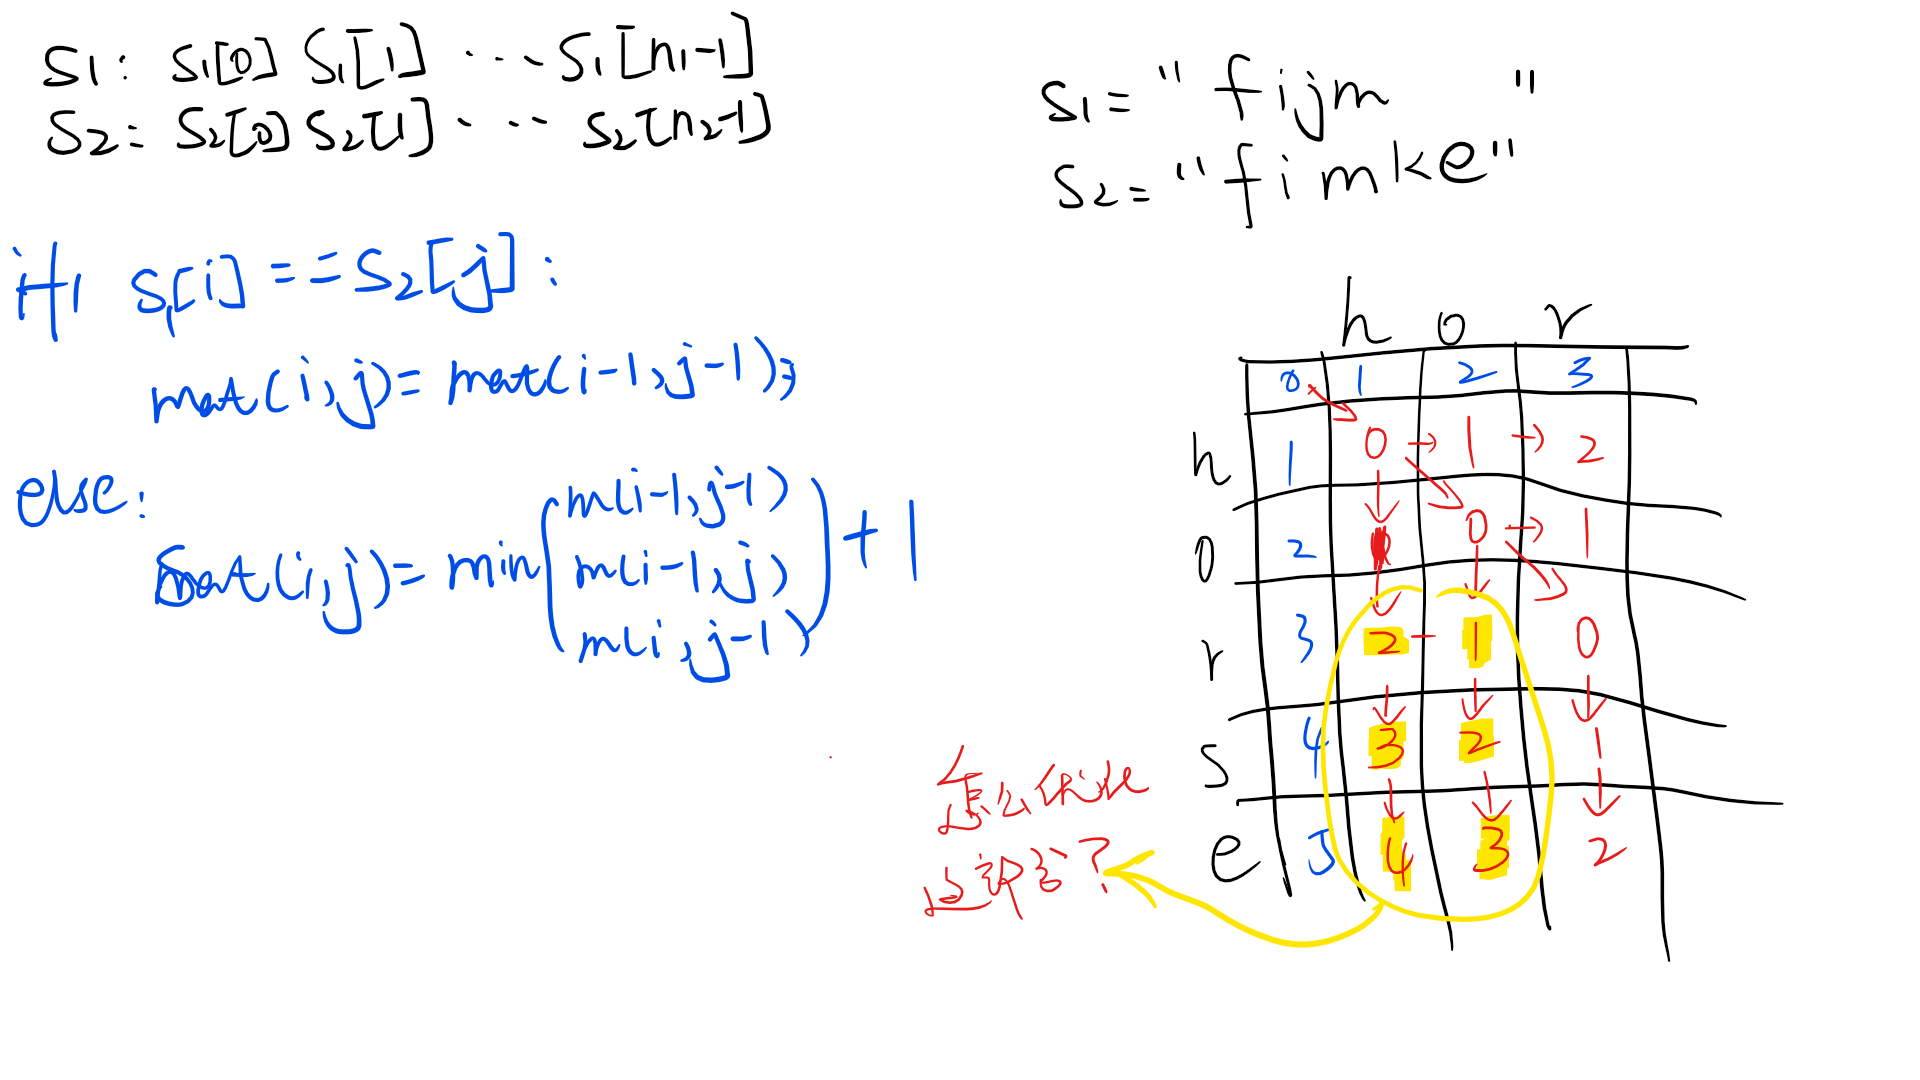 S1: S1[0] S1[1] ... S1[n1-1]
S2: S2[0] S2[1] ... S2[n2-1]
S1= "fijm "
S2= "fimke"
if S1[i] == S2[j] :
mat(i,j)= mat(i-1,j-1);
else:
mat(i,j)= min(m(i-1,j-1) m(i-1,j) m(i,j-1)) + 1
h o r
0 1 2 3
h 1 0 → 1 → 2
o 2 0 → 1
r 3 2 - 1 0
s 4 3 2 1
e 5 4 3 2
怎么优化
这部分?